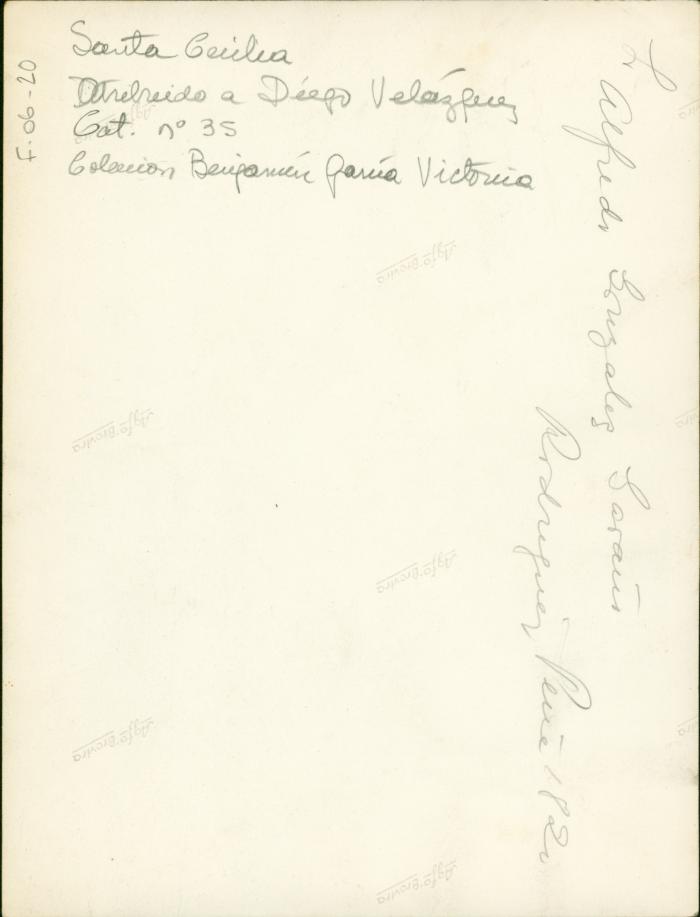 Santa Cecilia
Atribuido a Diego Velázquez
Cat. nº 35
Colección Benjamín García Victorica
F.06-20
Alfredo Gonzales Garaño
Rodriguez Peña 1820
Agfa-Brovira
Agfa-Brovira
Agfa-Brovira
Agfa-Brovira
Agfa-Brovira